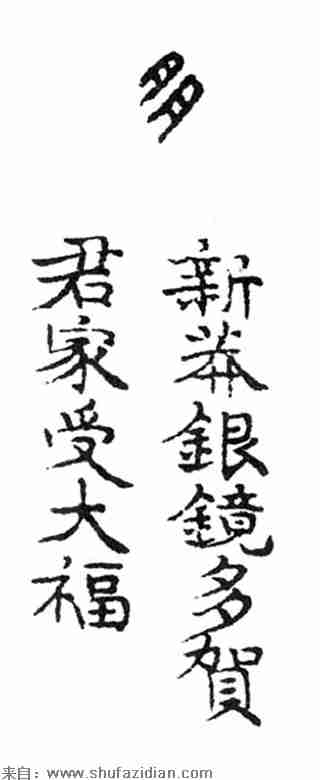 多
新莽銀鏡多賀
君家受大福
来自：www.shufazidian.com